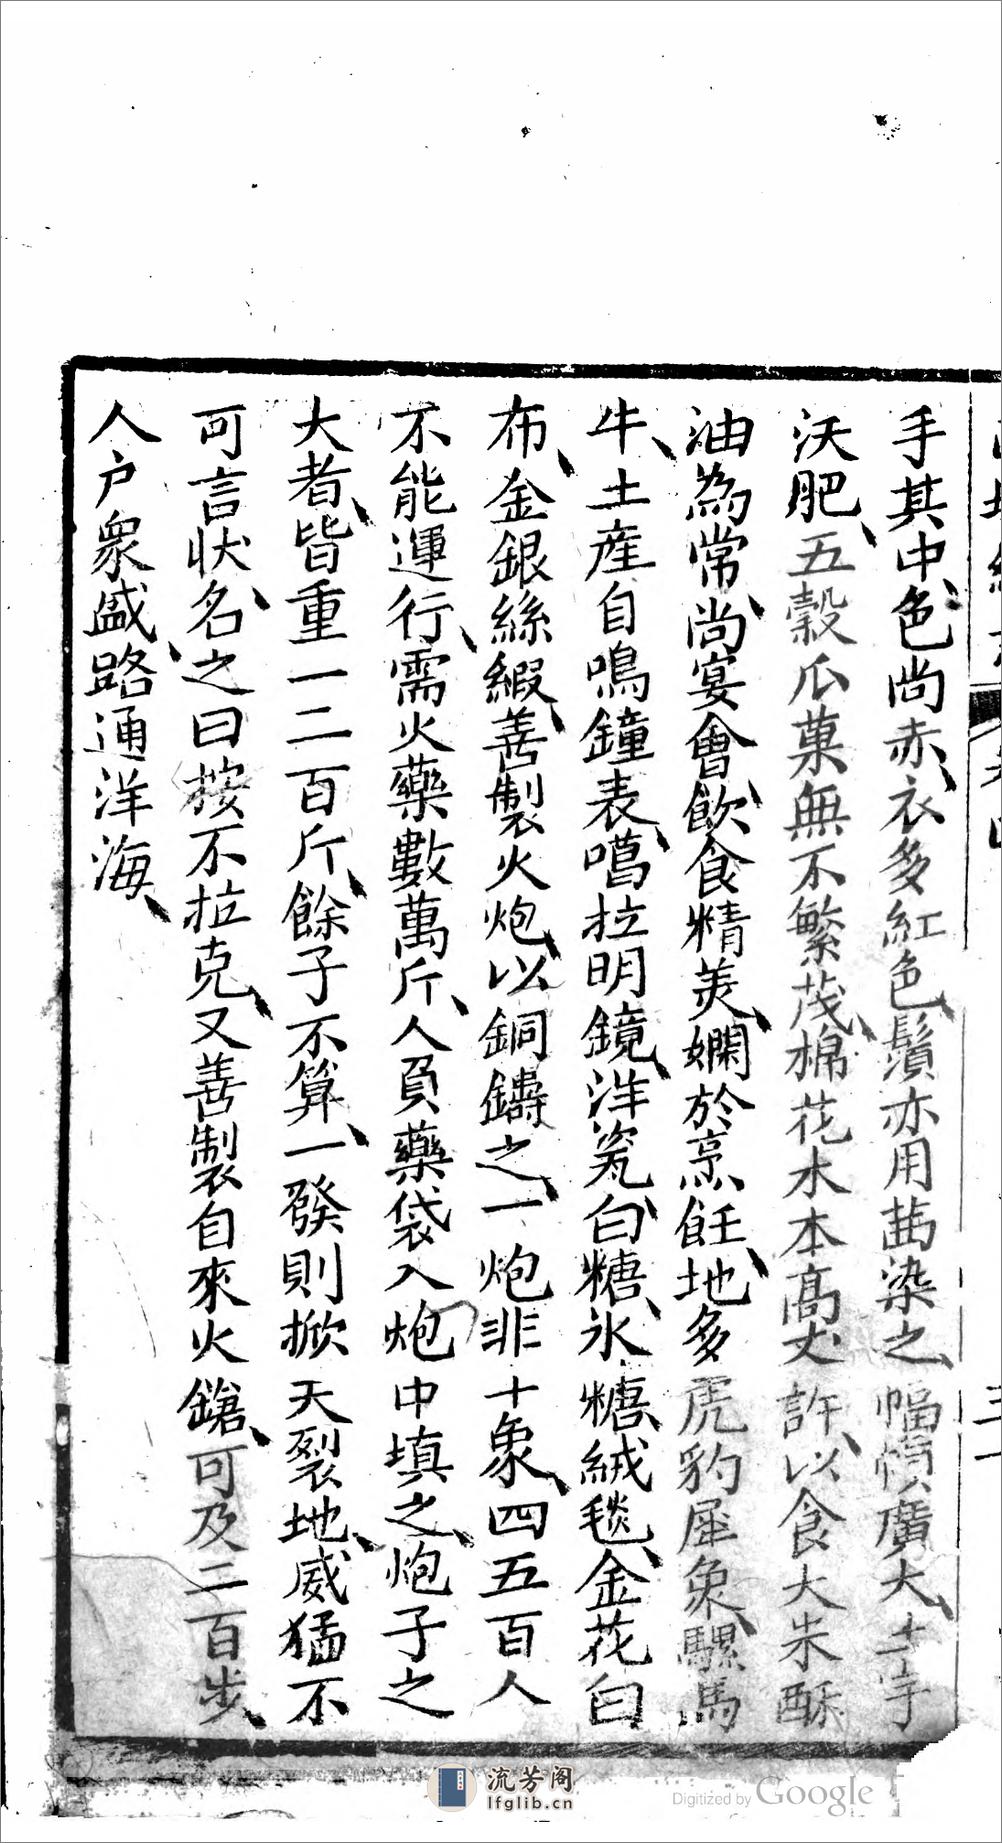 手其中色尚赤衣多紅色鬚亦用茜染之幅幀廣大土宇
沃肥五穀瓜菓無不繁茂棉花木本高丈許以食大米酥
油為常尚宴會飲食精美嫻於烹飪地多虎豹犀象騾馬
牛土產自鳴鐘表噶拉明鏡洋瓷白糖氷糖絨毯金花白
布金銀絲緞善製火炮以銅鑄之一炮非十象四五百人
不能運行需火藥數萬斤人負藥袋入炮中填之炮子之
大者皆重一二百斤餘子不算一發則掀天裂地威猛不
可言狀名之曰按不拉克又善製自來火鎗可及二百步
人户衆盛路通洋海
流芳阁
lfglib.cn
Digitized by Google